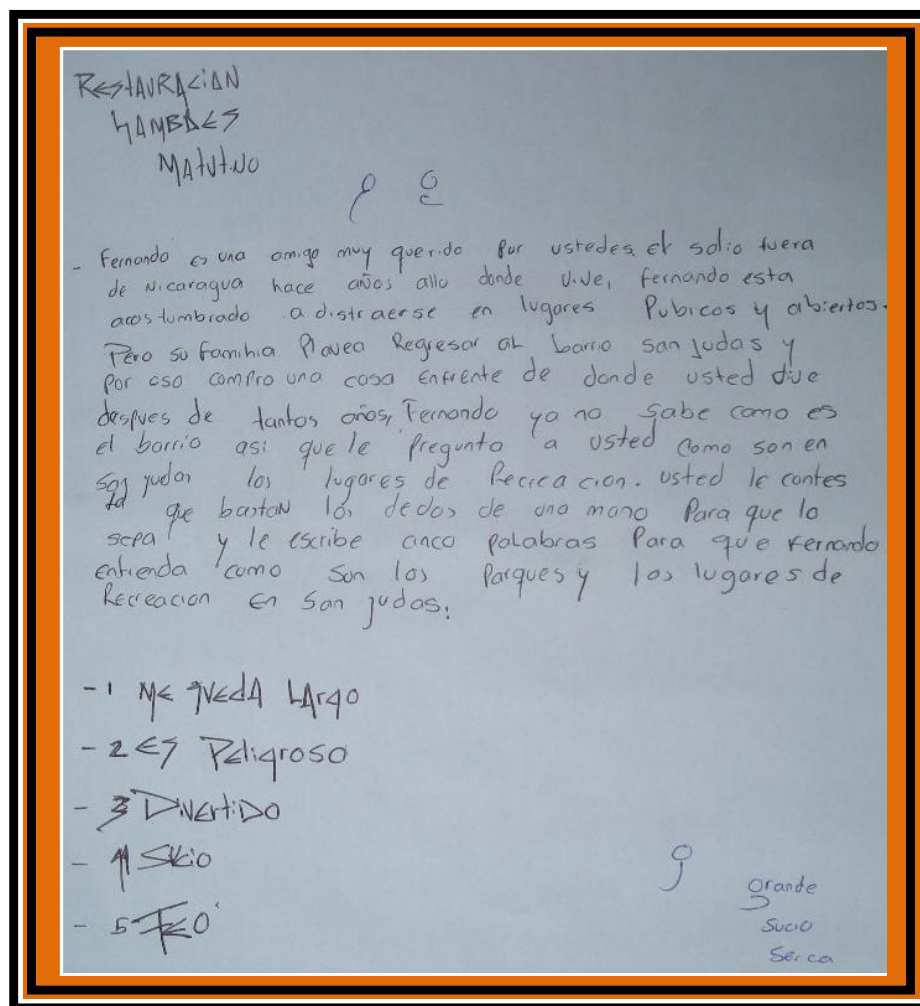 RESTAURACIAN
GAMBDES
MATUTINO
- Fernando es una amigo muy querido por ustedes, el salio fuera
de Nicaragua hace años alla donde vive, fernando esta
acostumbrado a distraerse en lugares Pubicos y abiertos.
Pero su familia Planea Regresar al barrio san judas y
por eso compro una casa enfrente de donde usted dive
despues de tantos años, Fernando ya no sabe como es
el barrio asi que le pregunta a usted como son en
san judas los lugares de Recreacion. usted le contes
ta que bastan los dedos de una mano Para que lo
sepa y le escribe cinco palabras Para que Fernando
entienda como son los Parques y los lugares de
Recreacion en San judas.
- 1 ME QUEDA LArgo
- 2 ES Peligroso
- 3 DIVErtiDO
- 4 SUCio
- 5 FEO
grande
sucio
serca